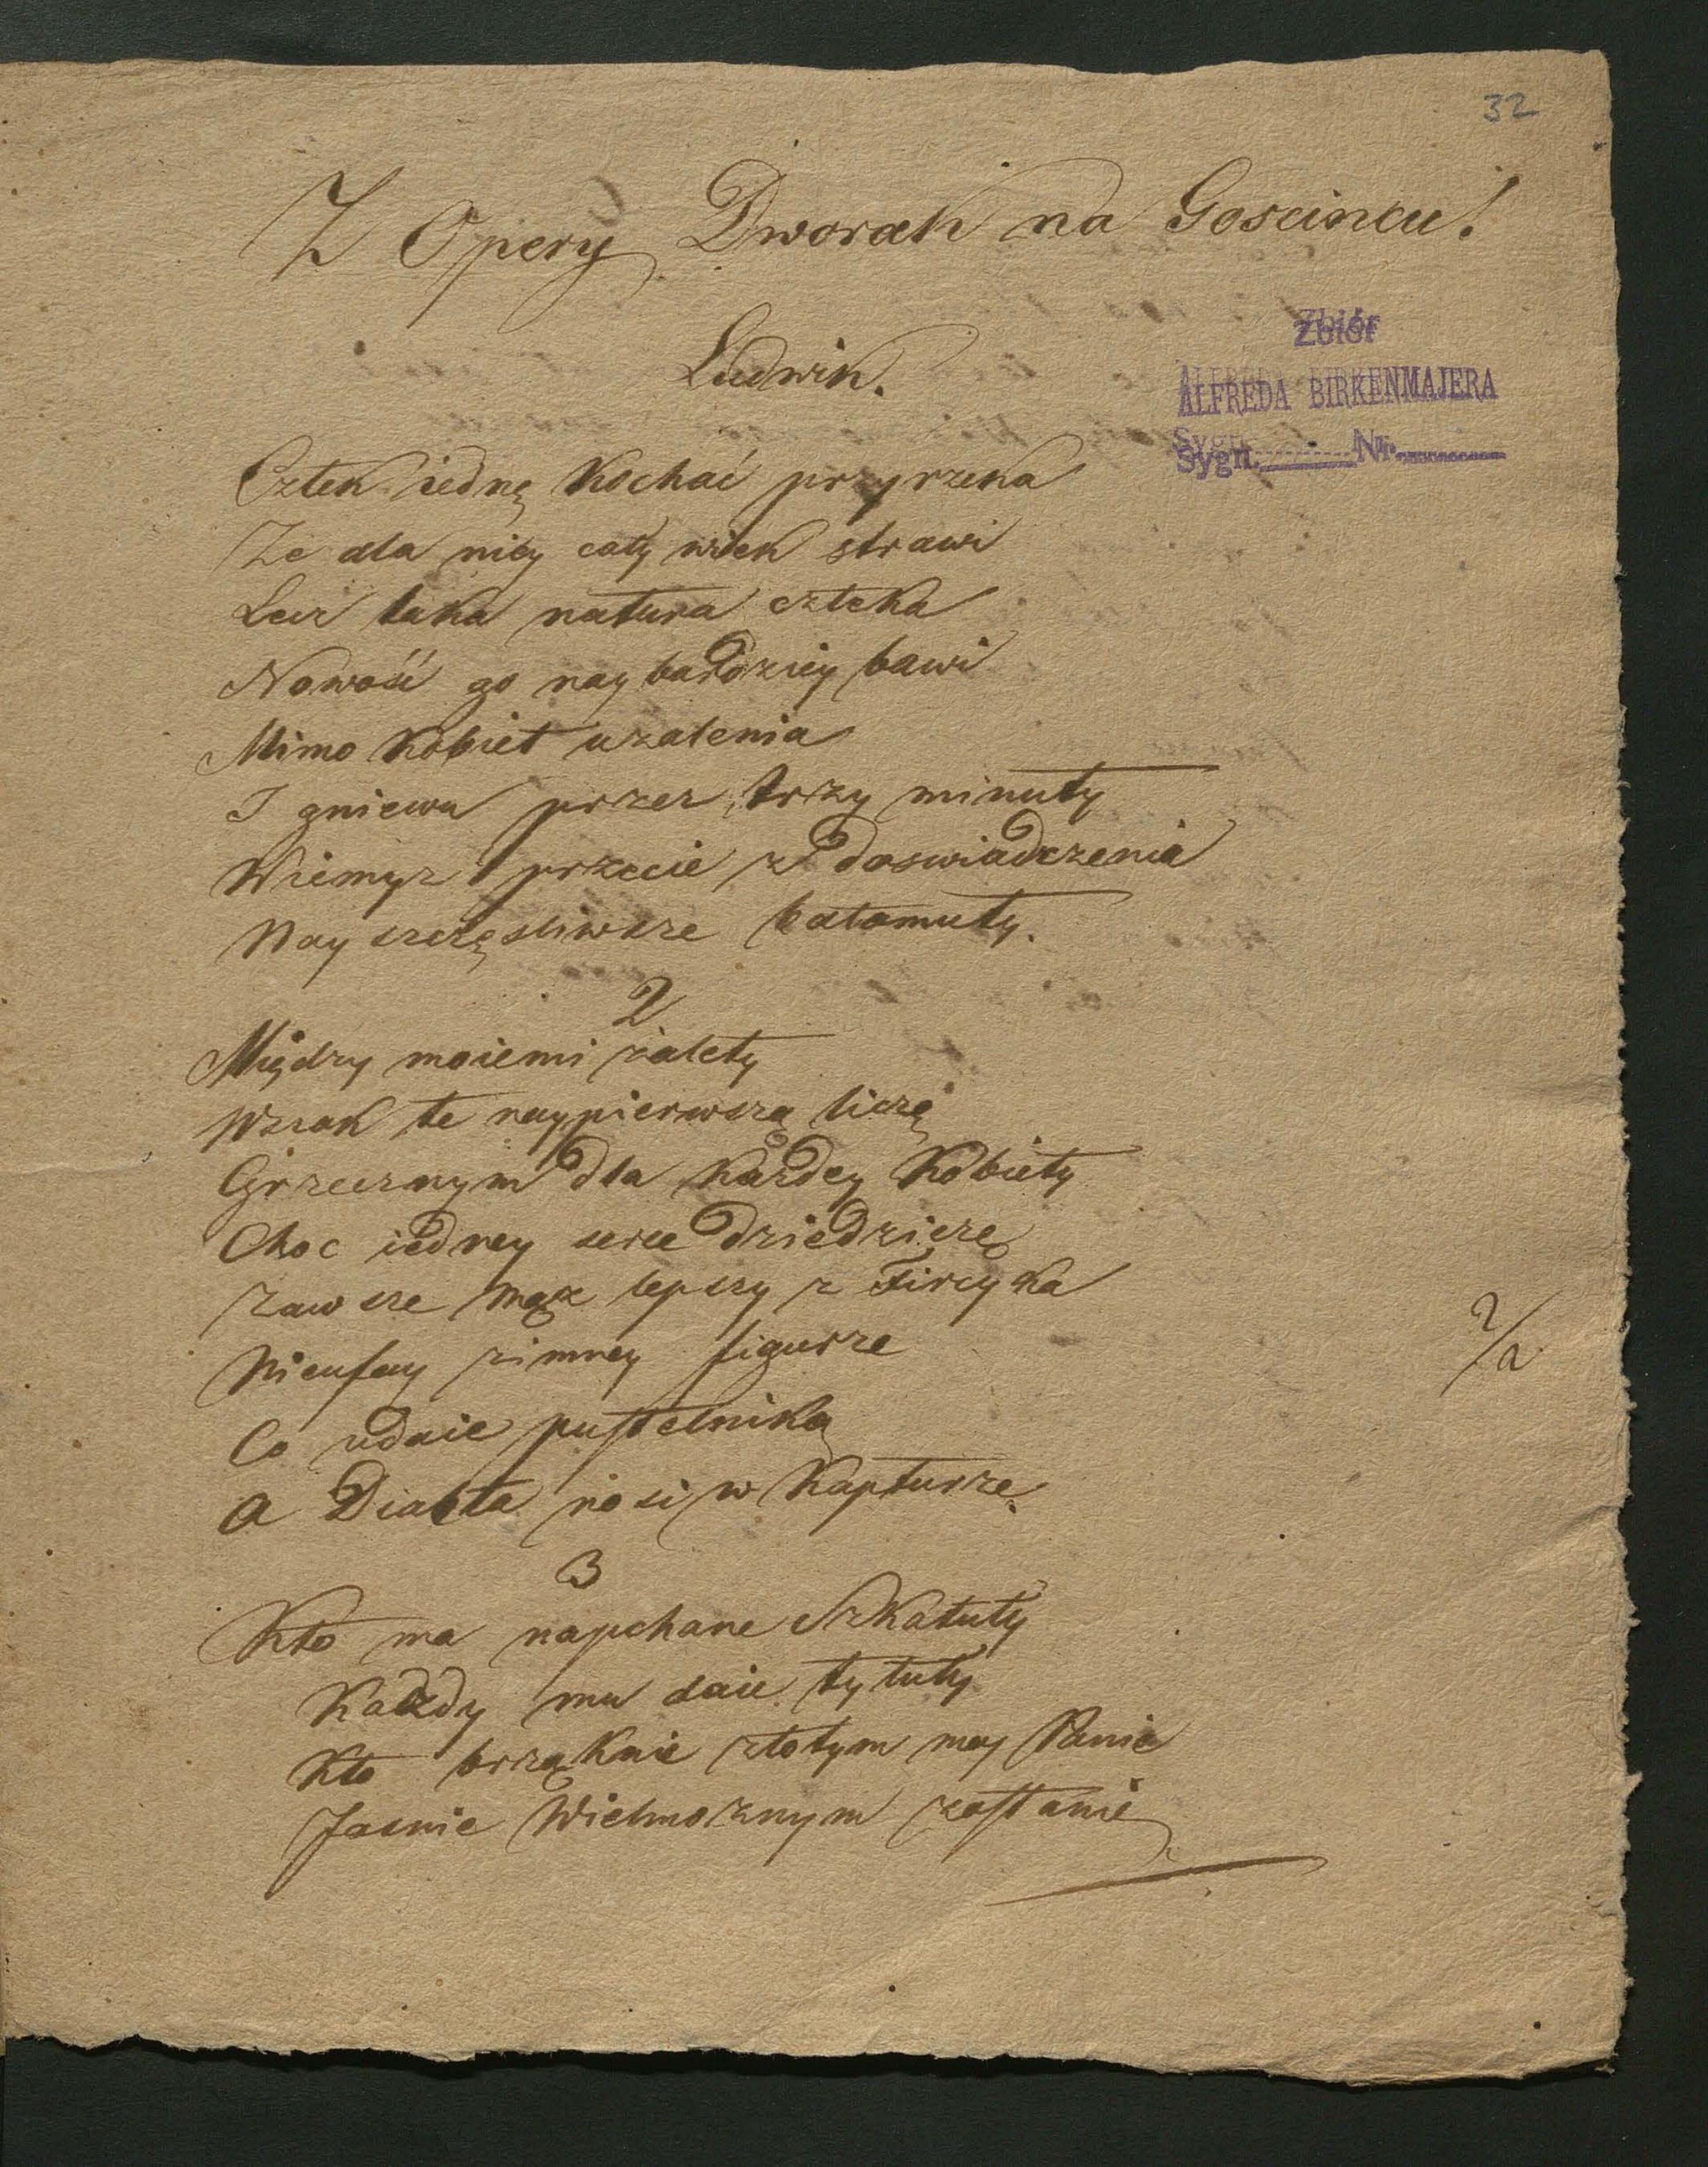 32
Z Opery Dworak na Goscincu!
Ludwik.
Zbiór
ALFREDA BIRKENMAJERA
Sygn. Nr.
Człek iednę kochać przyrzeka
Ze dla niey cały wiek strawi
Lecz taka natura człeka
Nowość go naybardziey bawi
Mimo kobiet uzalenia
I gniewu przez trzy minuty
Wiemyz przecie z doswiadczenia
Nay szczęsliwsze bałamuty.
2
Między moiemi zalety
Wszak te naypierwszą liczę
Grzecznym dla kazdey kobiety
Choc iedney serce dziedziczę
Zawsze mąz lepszy z Fircyka
Nieufay zimney figurze
Co udaie pustelnika
A Diabła nosi w kapturze.
3
Kto ma napchane Szkatuły
Kazdy mu daie tytuły
Kto brząknie złotym moy Panie
Jasnie Wielmoznym zostanie